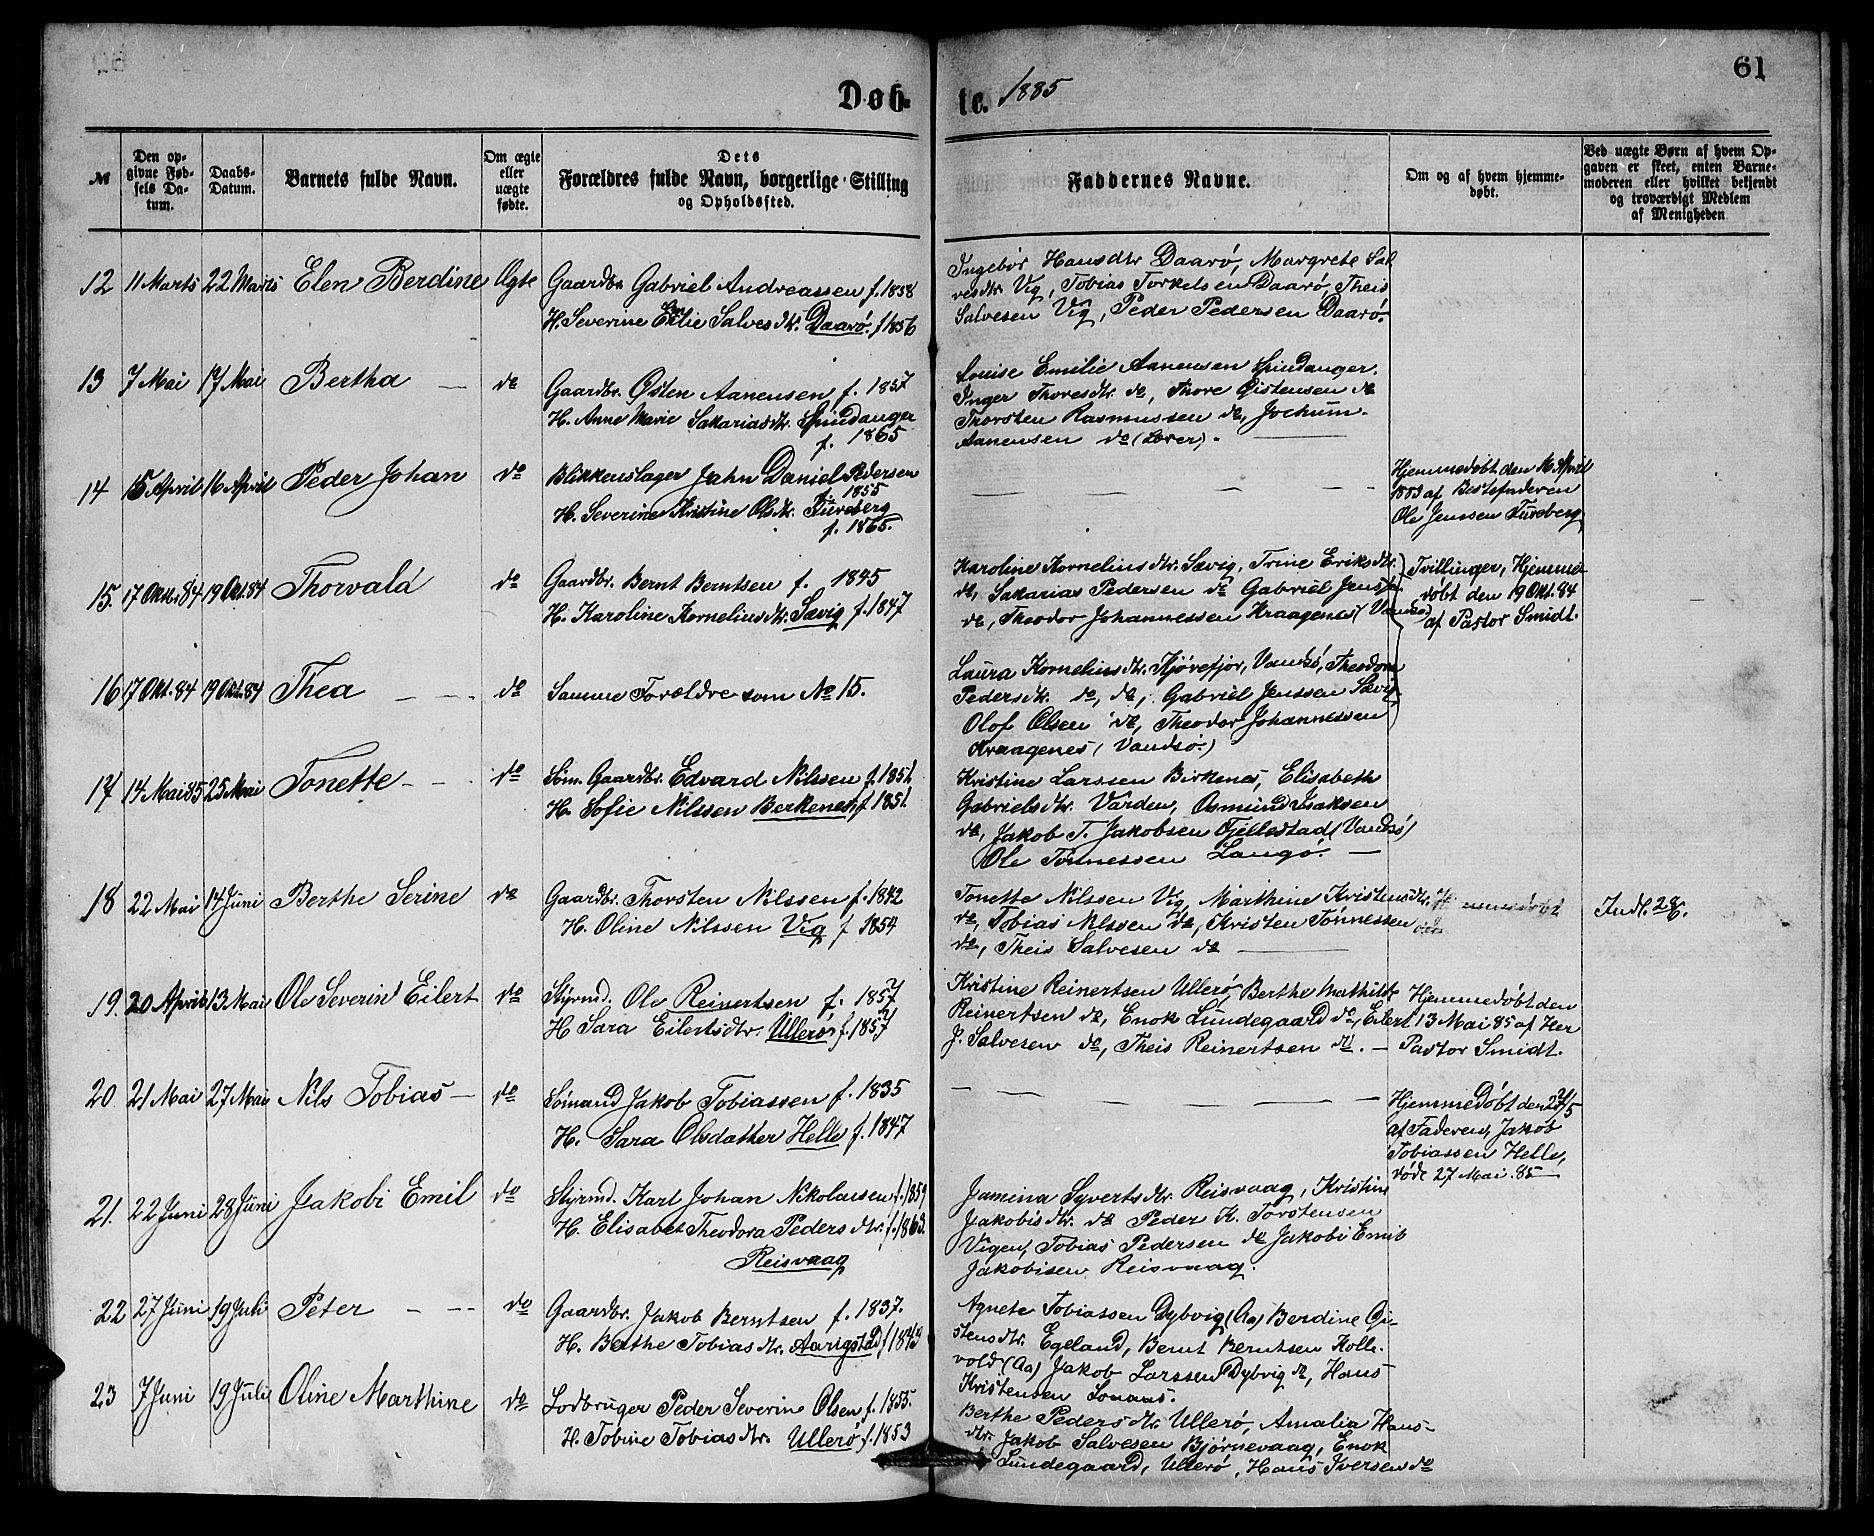 61
Døb-
te. 1885
№
Den opgivne Fødsels Datum.
Daabs-Datum.
Barnets fulde Navn.
Om ægte eller uægte fødte.
Dets Forældres fulde Navn, borgerlige Stilling og Opholdssted.
Faddernes Navne.
Om og af hvem hjemmedøbt.
Ved uægte Børn af hvem Opgaven er skeet, enten Barnemoderen eller hvilket bekjendt og troværdigt Medlem af Menigheden
12 11 Marts 22 Marts Elen Berdine Ægte
Gaardbr. Gabriel Andreassen f. 1858
H. Severine Emilie Salvesdtr. Daarø. f 1856
Ingebor Hansdtr Daarø, Margrete Sal
vesdtr. Vig, Tobias Torkelsen Daarø, Theis
Salvesen Vig, Peder Pedersen Daarø.
13 7 Mai 17 Mai Bertha — do
Gaardbr. Østen Aanensen f. 1857
H. Anne Marie Sakariasdtr. Spindanger
f. 1865
Louise Emilie Aanensen Spindanger.
Inger Thoresdtr. do, Thore Øistensen do
Thorsten Rasmussen do, Jochum
Aanensen do (Lører). —
14 15 April 16 April Peder Johan do
Blikkenslager Jahn Daniel Pedersen
f. 1855
H. Severine Kristine Olsdtr. Tureberg
f. 1865.
— — — — —
Hjemmedøbt den 16 April
1885 af Bestefaderen
Ole Jenssen Tureberg
15. 17 Oktr. 84 19 Okt. 84 Thorvald do
Gaardbr. Bernt Berntsen f. 1845
H. Karoline Kornelius dtr. Sævig f. 1847
Karoline Kornelius dtr. Sævig, Trine Eriksdtr.
do, Sakarias Pedersen do Gabriel Jenssen
do, Theodor Johannessen Kraagenes (Vandsø)
Tvillinger, Hjemme
døbt den 19 Okt. 84
af Pastor Smidt.
16 17 Okt. 84 19 Okt. 84 Thea — — do
Samme Forældre som No 15.
Laura Kornelius dtr. Kjørefjor, Vandsø, Theodora
Pedersdtr. do, do, Gabriel Jenssen Sævig
Olof Olsen do, Theodor Johannessen
Kraagenes (Vandsø.)
17 14 Mai 85 25 Mai Tonette — — do
Søm. Gaardbr. Edvard Nilssen f. 1851
H. Sofie Nilssen Berkenes, f 1851.
Kristine Larssen Birkenes, Elisabeth
Gabrielsdtr. Varden, Osmund Isaksen
do, Jakob T. Jakobsen Fjellestad (Vandsø)
Ole Tønnessen Langø. —
18 22 Mai 14 Juni Berthe Serine do
Gaardbr. Thorsten Nilssen f. 1842
H. Oline Nilssen Vig f 1854
Tonette Nilssen Vig, Marthine Kristensdtr.
do, Tobias Nilssen do, Kristen Tønnessen
do, Theis Salvesen do —
Hjemmedøbt
Indl. 28/6.
19. 20 April 13 Mai Ole Severin Eilert do
Styrmd. Ole Reinertsen f. 1857
H Sara Eilertsdtr. Ullerø f. 1857
Kristine Reinertsen Ullerø, Berthe Mathilde
Reinertsen do, Enok Lundegaard do, Eilert
J. Salvesen do, Theis Reinertsen do. —
Hjemmedøbt den
13 Mai 85 af Her
Pastor Smidt.
20 21 Mai 27 Mai Nils Tobias — do
Sømand Jakob Tobiassen f. 1835
H. Sara Olsdatter Helle f. 1847
— — — — —
Hjemmedøbt den 27/5
af Faderen, Jakob
Tobiassen Helle,
døde 27 Mai. 85 —
21. 22 Juni 28 Juni Jakobi Emil do
Styrmd. Karl Johan Nikolaisen f. 1859
H. Elisabet Theodora Peders dtr. f. 1863.
Reisvaag
Jamina Syverts dtr. Reisvaag, Kristine
Jakobisdtr. do Peder K. Torstensen
Vigen, Tobias Pedersen do Jakobi Emil
Jakobisen Reisvaag.
22 27 Juni 19 Juli Peter — — do
Gaardbr. Jakob Berntsen f. 1837.
H. Berthe Tobias dtr. Aarigstad f 1843
Agnete Tobiassen Dybvig (Aa) Berdine Gi-
stensdtr. Egeland, Bernt Berntsen Kolle-
vold (Aa) Jakob Larssen Dybvig do, Hans
Kristensen
23 7 Juni 19 Juli Oline Marthine do
Lodbruger Peder Severin Olsen f. 1855.
H. Tobine Tobias dtr. Ullerø f. 1853
Berthe Peders dtr. Ullerø, Amalia Hans-
dtr. Jakob Salvesen Bjørnevaag, Enok
Lundegaard, Ullerø, Hans Iversen do